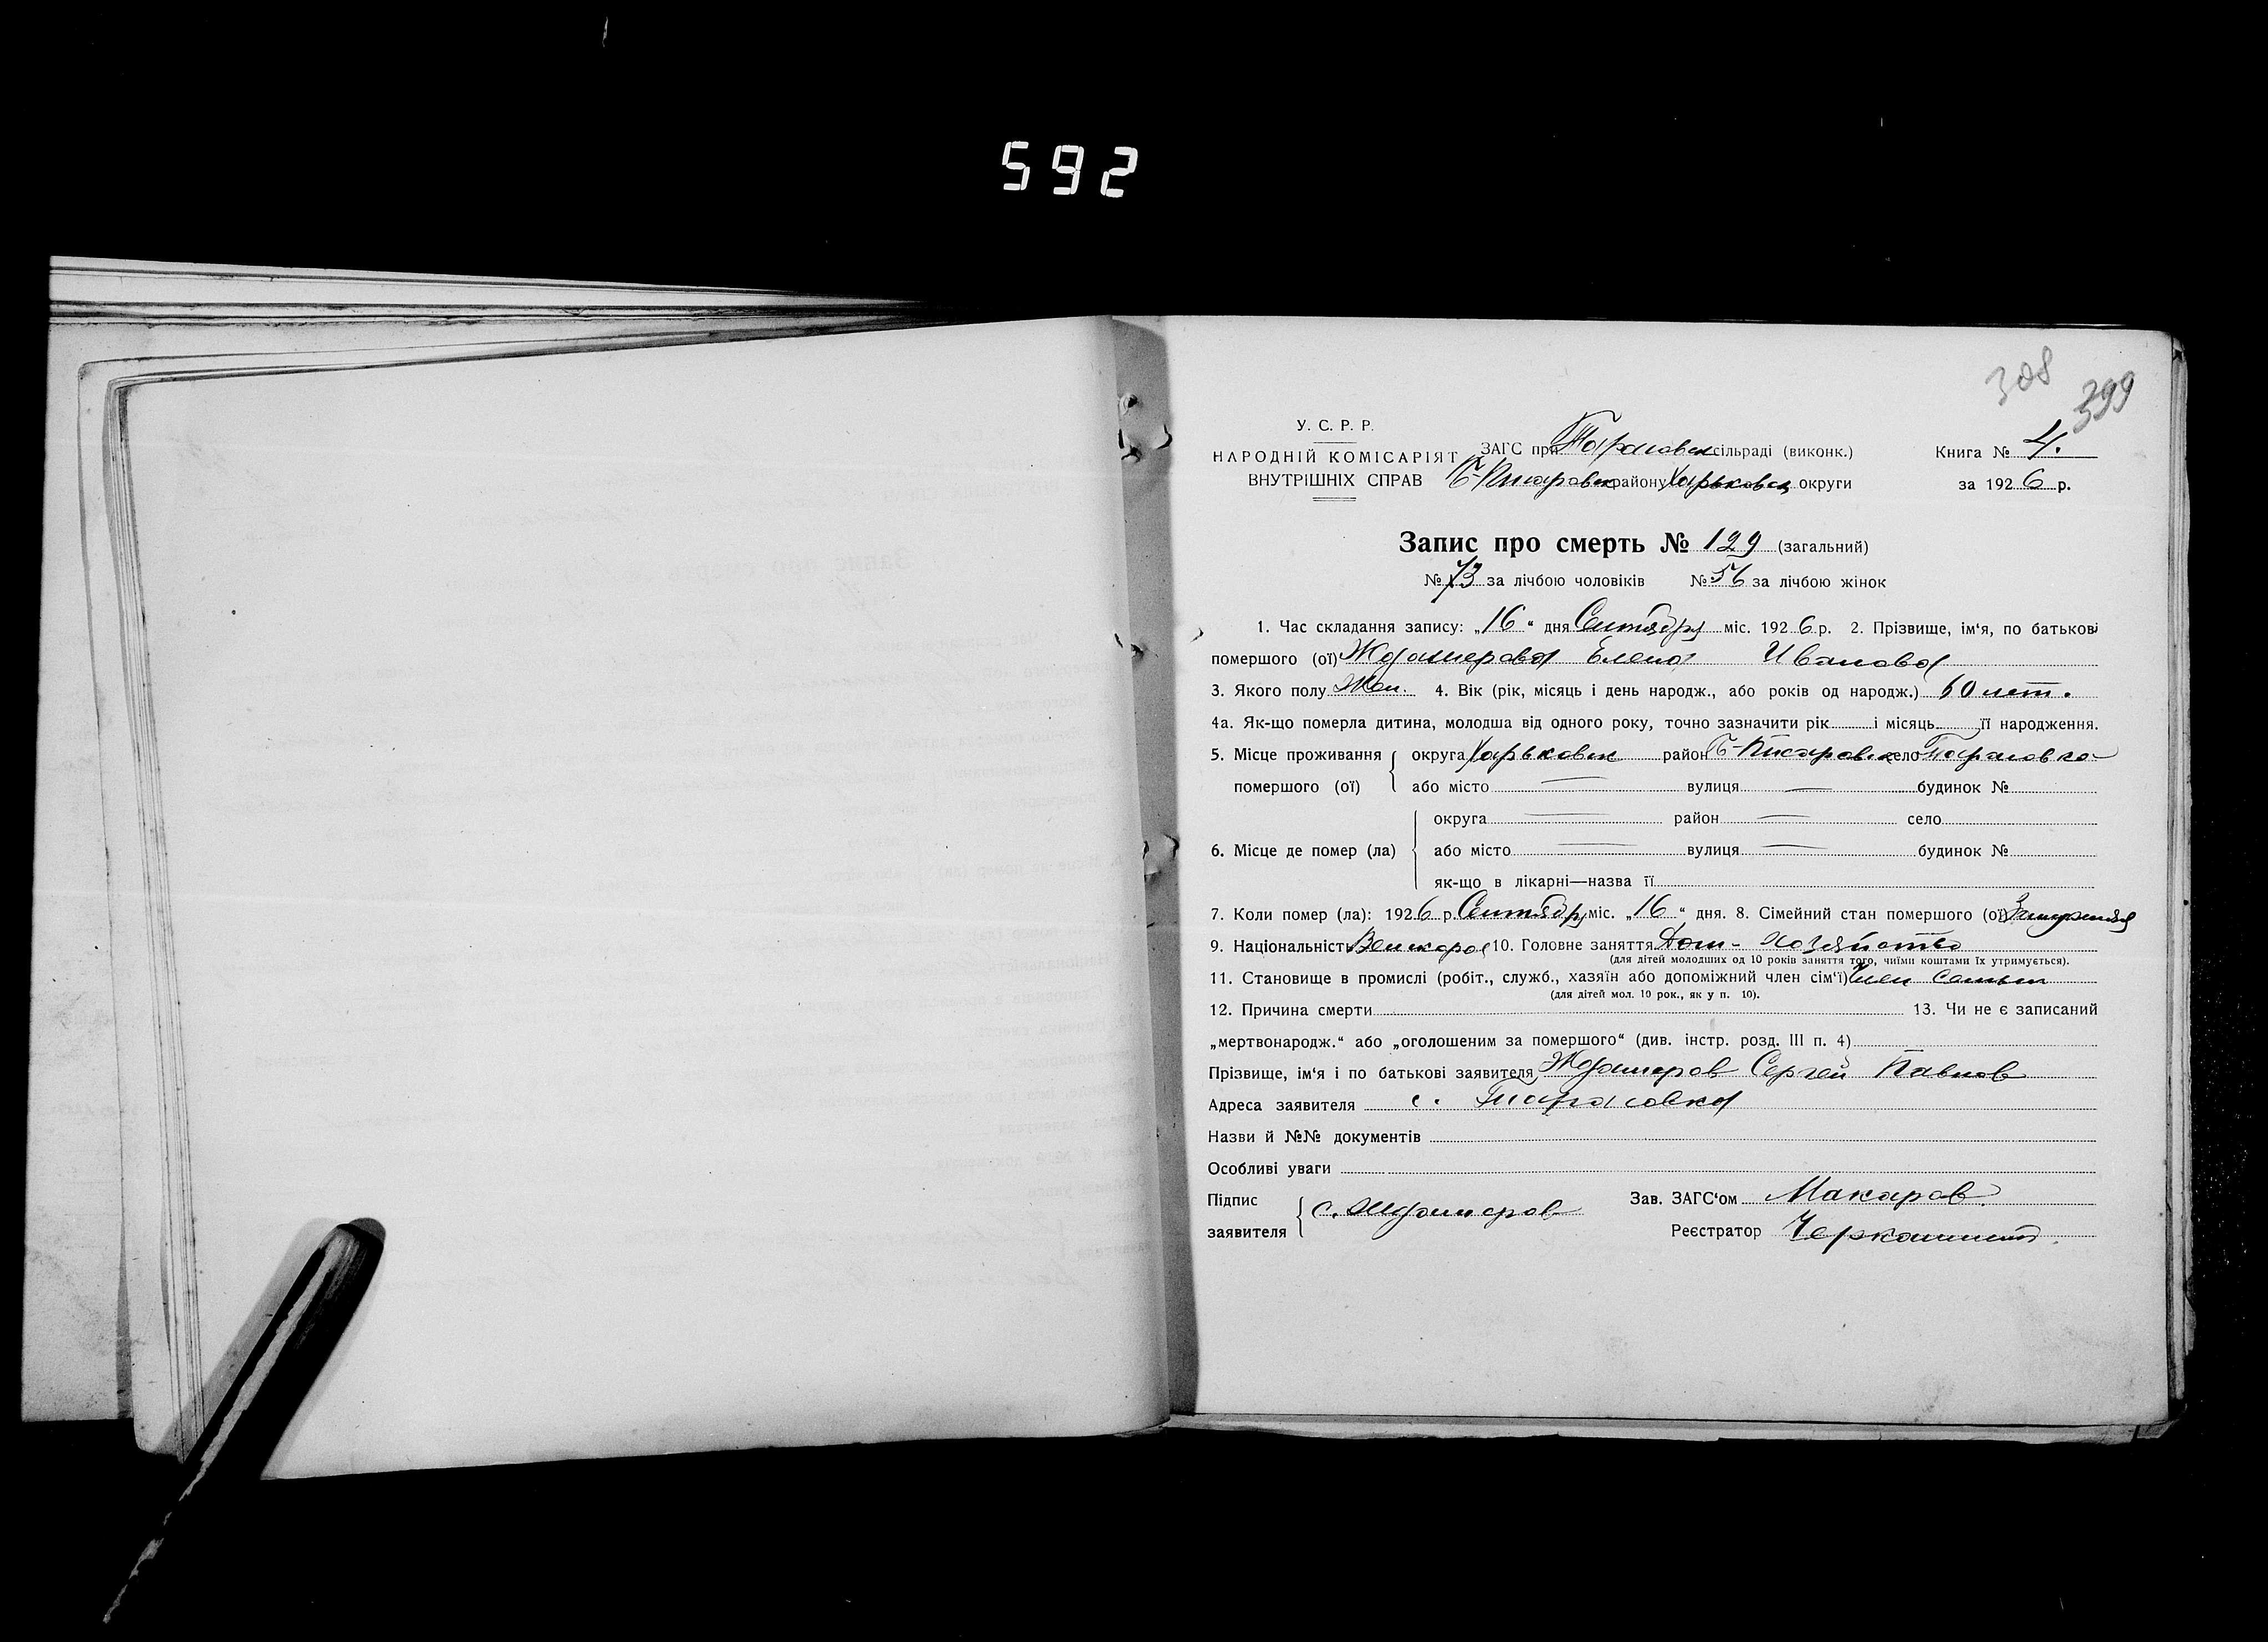 592
308
399
У. С. Р. Р.
НАРОДНІЙ КОМІСАРІЯТ
ВНУТРІШНІХ СПРАВ
ЗАГС при Тарасовск сільраді (виконк.)
Б-Писаровск району Харьковск округи
Книга № 4.
за 1926 р.
Запис про смерть № 129 (загальний)
№ 73 за лічбою чоловіків № 56 за лічбою жінок
1. Час складання запису: „16“ дня Сентября міс. 1926 р. 2. Прізвище, ім‘я, по батькові
помершого (ої) Ждамерова Елена Иванова
3. Якого полу Жен. 4. Вік (рік, місяць і день народж., або років од народж.) 60 лет.
4а. Як-що померла дитина, молодша від одного року, точно зазначити рік і місяць її народження.
5. Місце проживання округа Харьковск район Б-Писаровск село Тарасовка
помершого (ої) або місто — вулиця — будинок №
округа — район — село
6. Місце де помер (ла) або місто — вулиця — будинок №
як-що в лікарні—назва її
7. Коли помер (ла): 1926 р. Сентября міс. „16“ дня. 8. Сімейний стан помершого (ої) Замужняя
9. Національність Великорос 10. Головне заняття Дом- Хозяйство
(для дітей молодших од 10 років заняття того, чиїми коштами їх утримується).
11. Становище в промислі (робіт., служб., хазяїн або допоміжний член сім‘ї) Член семьи
(для дітей мол. 10 рок., як у п. 10).
12. Причина смерти 13. Чи не є записаний
„мертвонародж.“ або „оголошеним за помершого“ (див. інстр. розд. III п. 4)
Прізвище, ім‘я і по батькові заявителя Ждамеров Сергей Павлов
Адреса заявителя с. Тарасовка
Назви й №№ документів
Особливі уваги
Підпис
заявителя С. Ждамеров
Зав. ЗАГС‘ом Макаров
Реєстратор